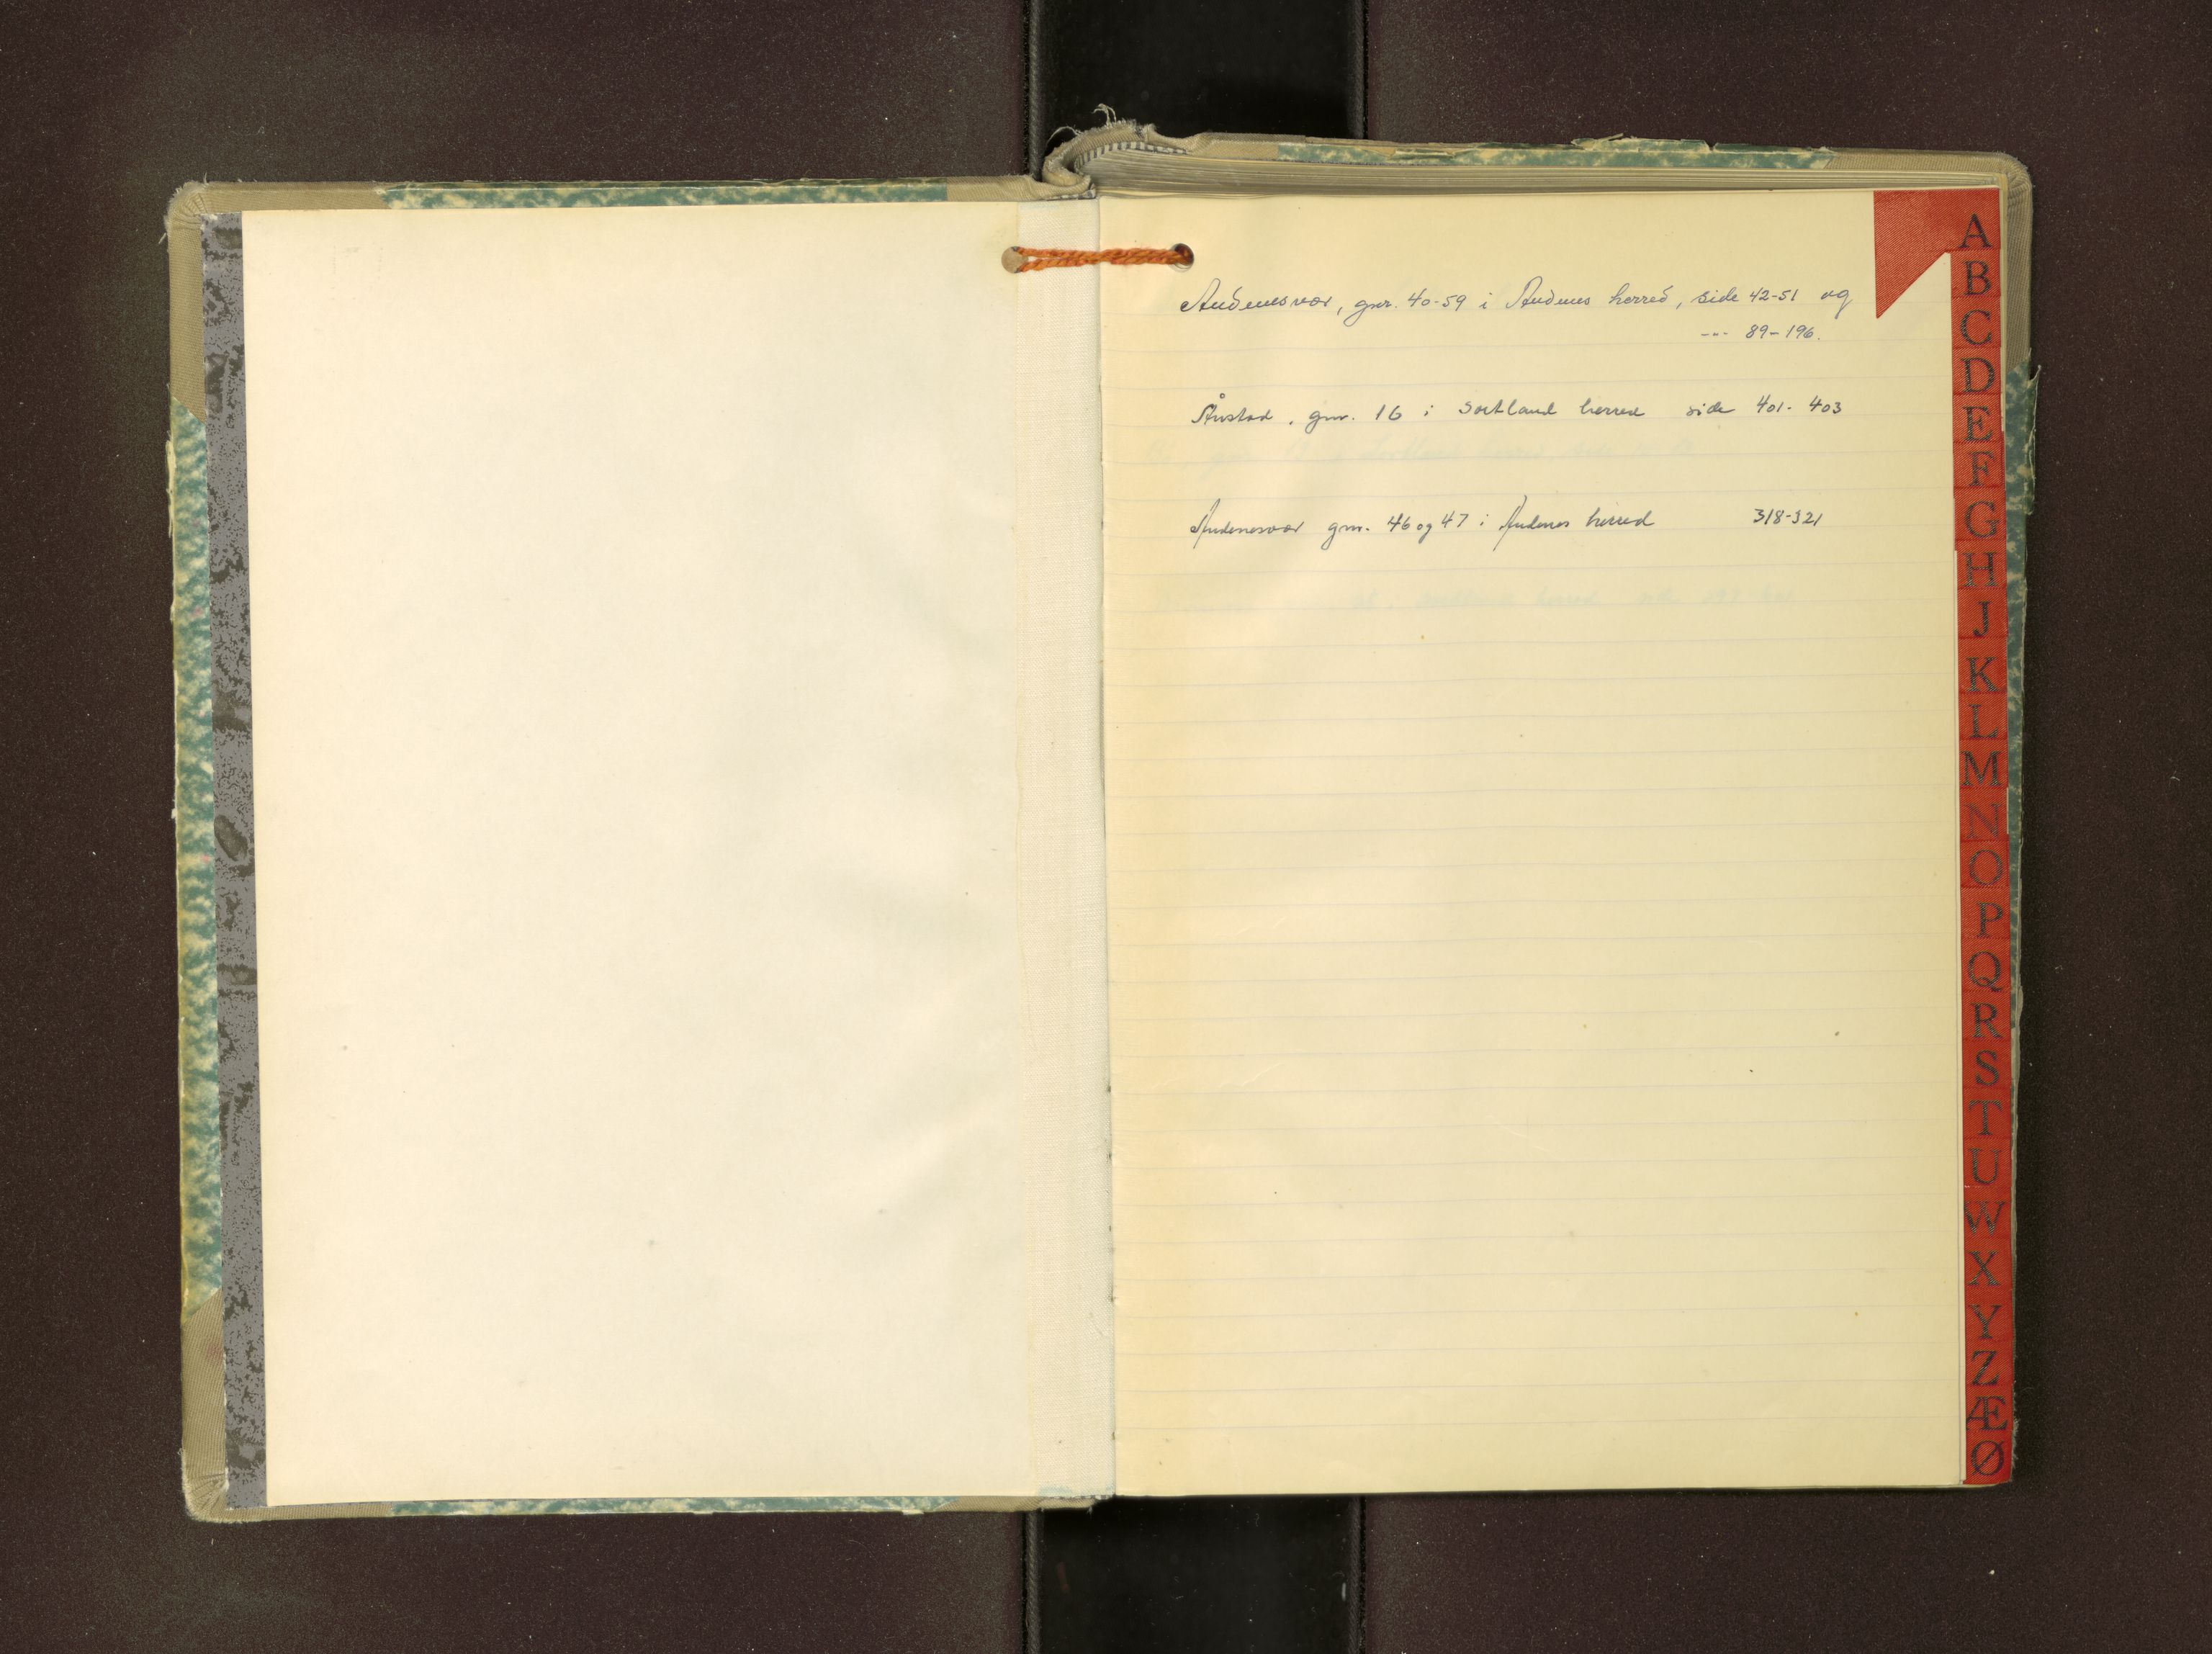 Andenesvær, gnr. 40-59 i Andenes herred, side 42-51 og
-"- 89-196.
Ånstad, gnr. 16 i Sortland herred side 401-403
Andenesvær gnr. 46 og 47 i Andenes herred 318-321
A
B
C
D
E
F
G
H
J
K
L
M
N
O
P
Q
R
S
T
U
W
X
Y
Z
Æ
Ø